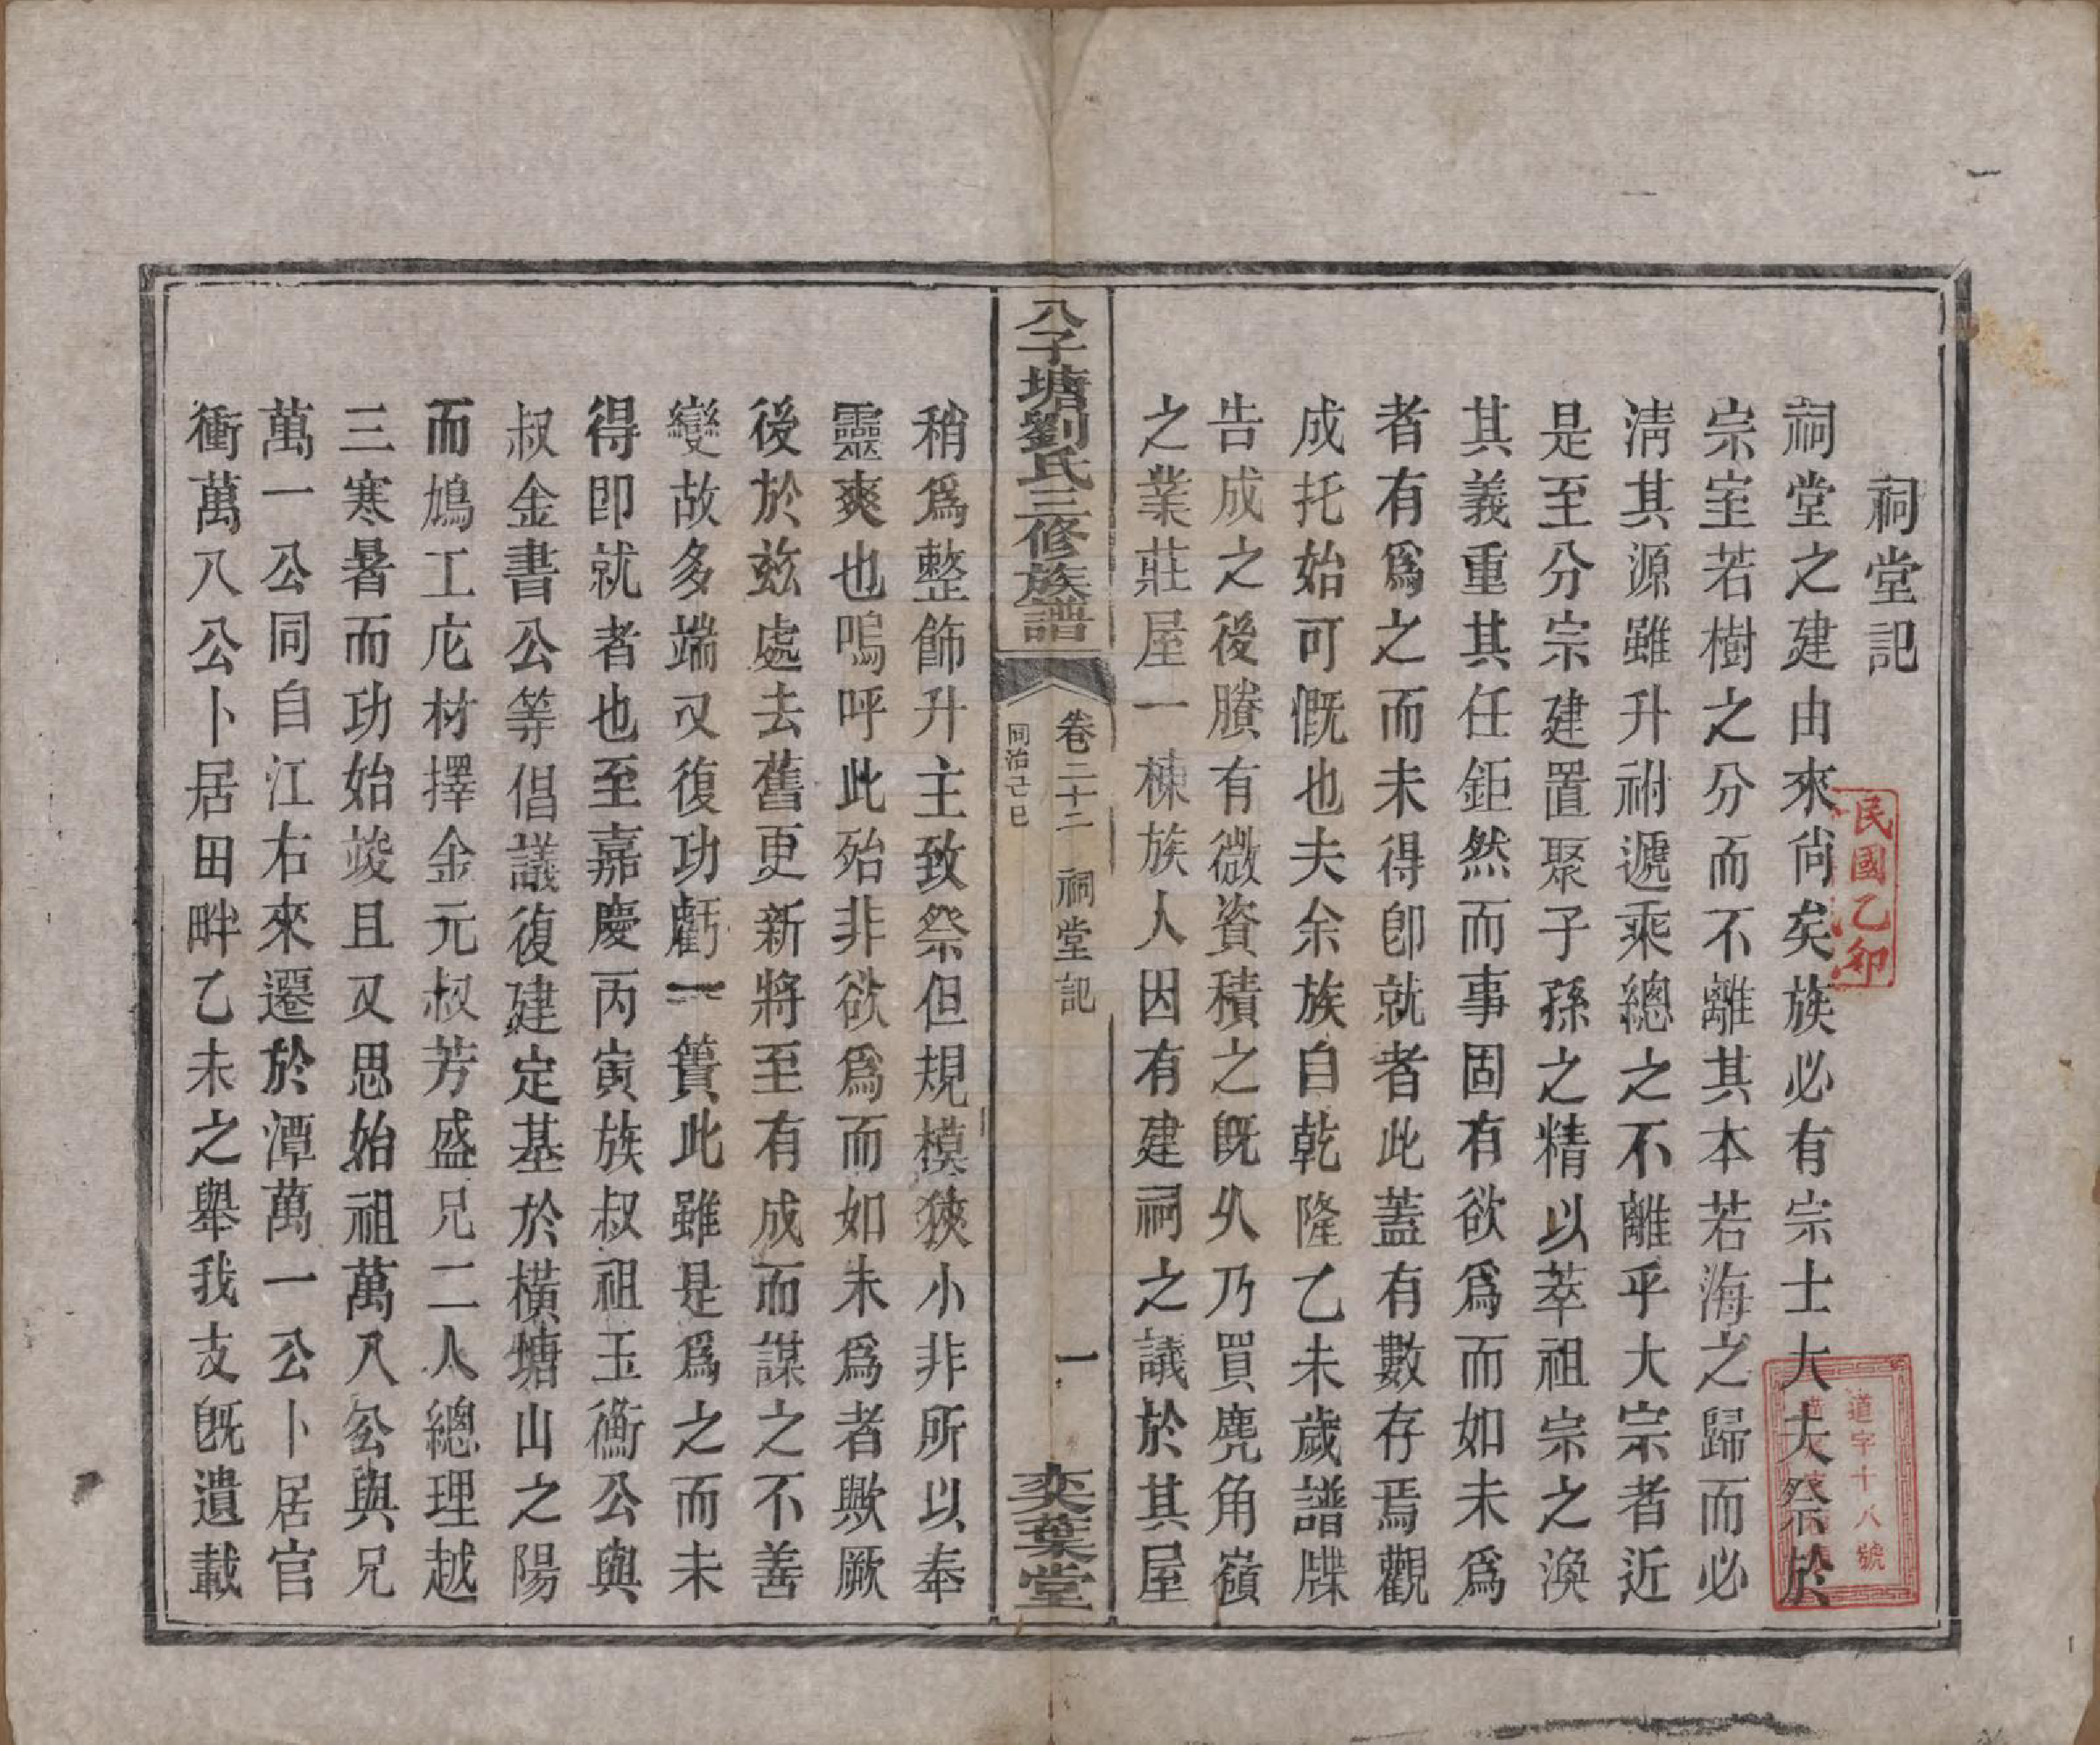 祠堂記
民國乙卯
祠堂之建由來尚矣族必有宗士大夫祭於
宗室若樹之分而不離其本若海之歸而必
清其源雖升祔遞乘總之不離乎大宗者近
是至分宗建置聚子孫之精以萃祖宗之渙
其義重其任鉅然而事固有欲爲而如未爲
者有爲之而未得卽就者此蓋有數存焉觀
成托始可慨也夫余族自乾隆乙未歲譜牒
告成之後賸有微資積之既久乃買麂角嶺
之業莊屋一棟族人因有建祠之議於其屋
道字十八號
八子塘劉氏三修族譜
卷二十二 祠堂記
同治己巳
一
奕葉堂
稍爲整飾升主致祭但規模狹小非所以奉
靈爽也嗚呼此殆非欲爲而如未爲者歟厥
後於茲處去舊更新將至有成而謀之不善
變故多端又復功虧一簣此雖是爲之而未
得即就者也至嘉慶丙寅族叔祖玉衡公與
叔金書公等倡議復建定基於橫塘山之陽
而鳩工庀材擇金元叔芳盛兄二人總理越
三寒暑而功始竣且又思始祖萬八公與兄
萬一公同自江右來遷於潭萬一公卜居官
衝萬八公卜居田畔乙未之舉我支旣遺載